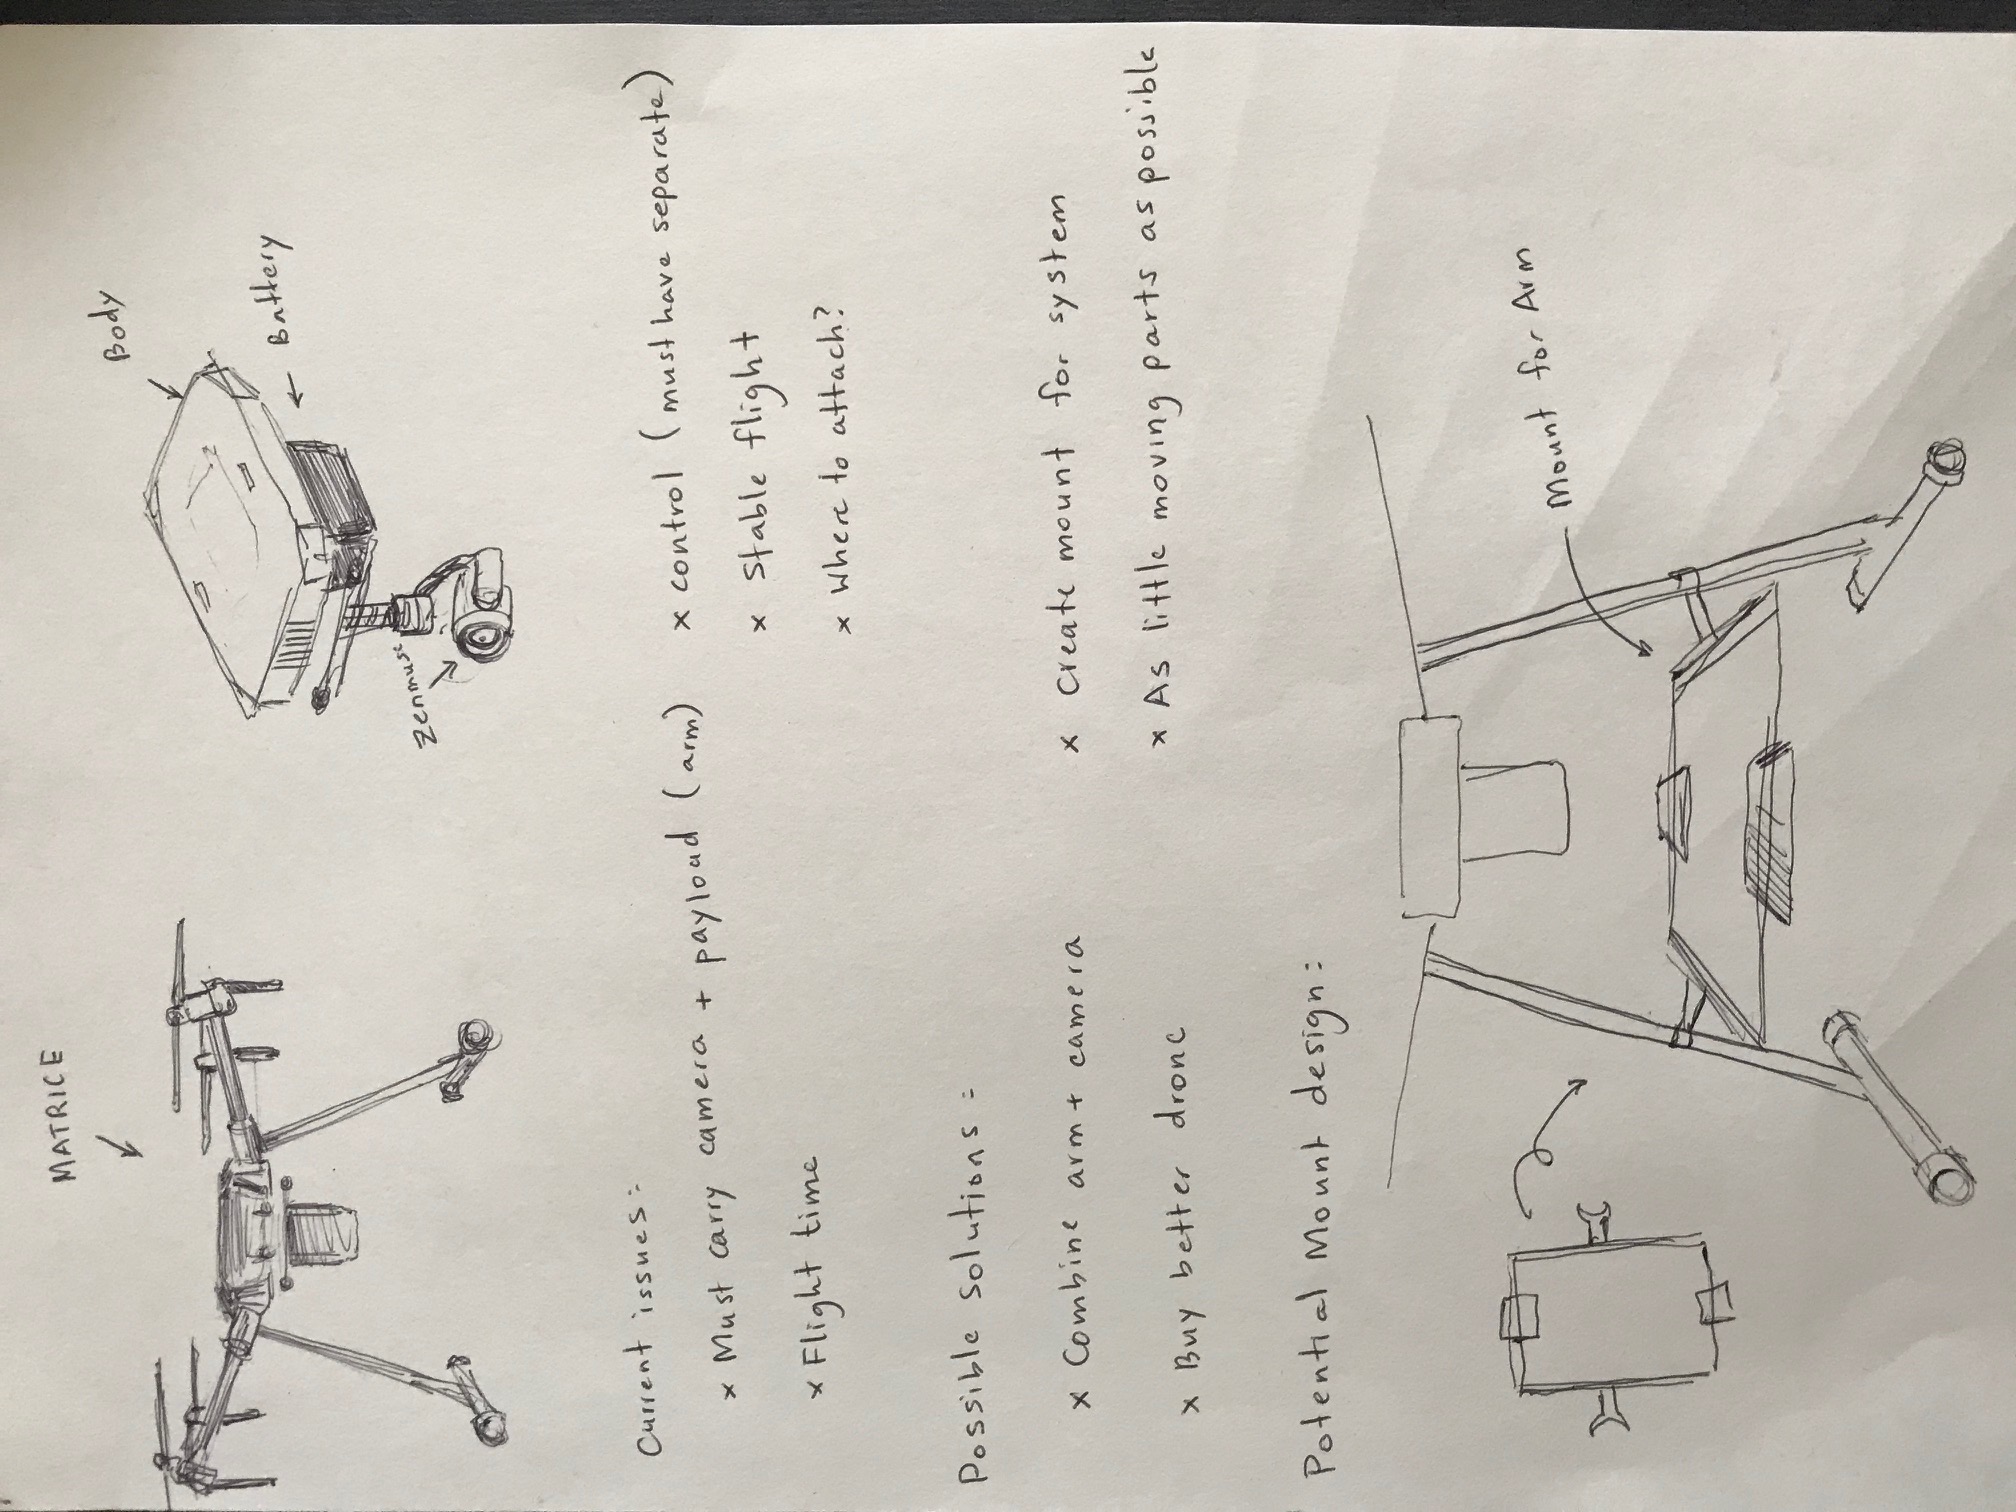 MATRICE
Body
Battery
Zenmuse
Current issues:
x Must carry camera + payload (arm)
x Flight time
x control (must have separate)
x Stable flight
x Where to attach?
Possible solutions:
x Combine arm + camera
x Buy better drone
x Create mount for system
x As little moving parts as possible
Potential Mount design:
Mount for Arm